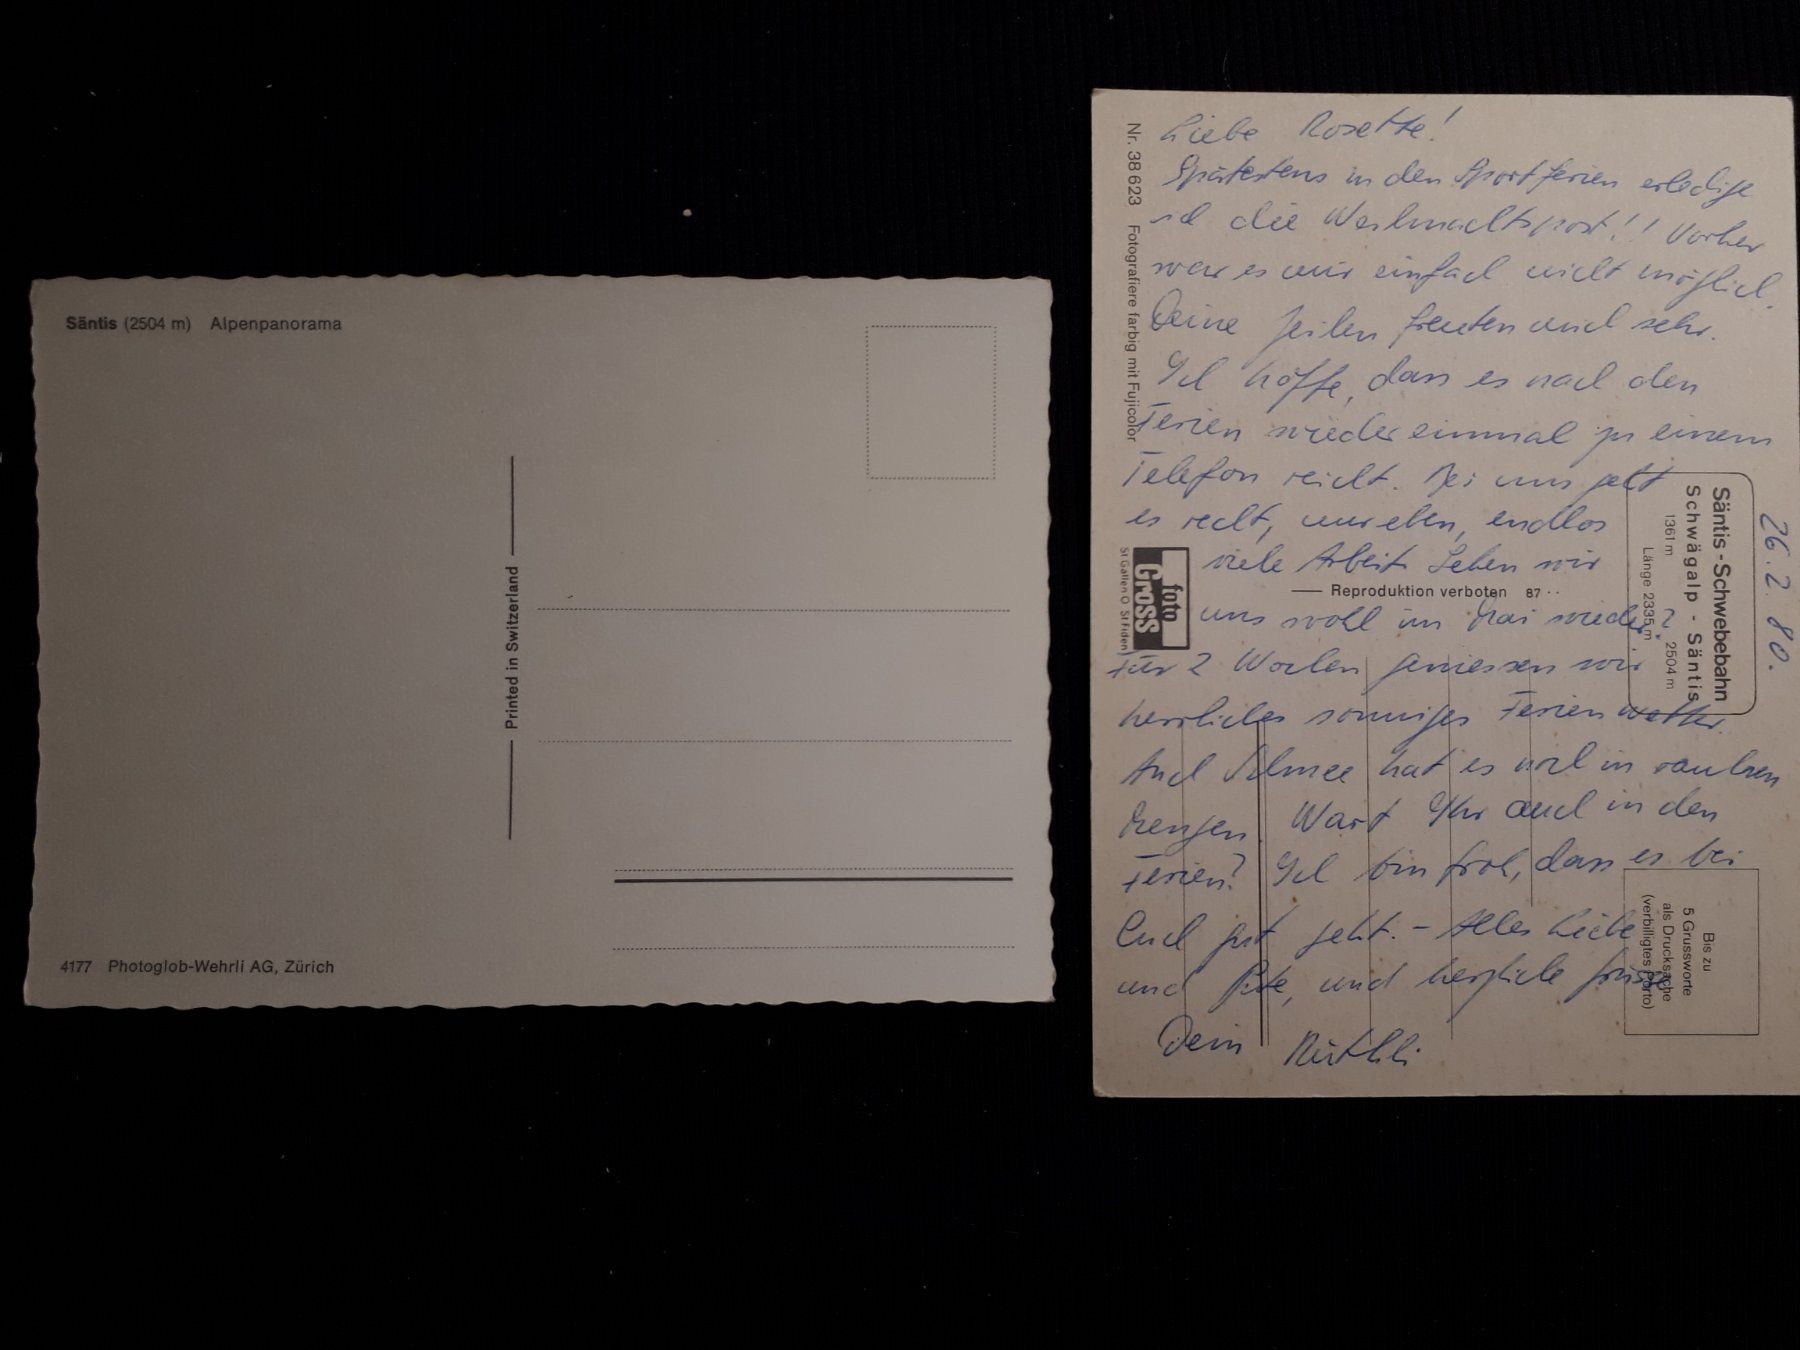 Säntis (2504 m) Alpenpanorama
Printed in Switzerland
4177 Photoglob-Wehrli AG, Zürich
Nr. 38 623 Fotografiere farbig mit Fujicolor
Liebe Rosette!
Spätestens in den Sportferien erledige
ich die Weihnachtspost!! Vorher
war es mir einfach nicht möglich.
Deine Zeilen freuten mich sehr.
Ich hoffe, dass es nach den
Ferien wieder einmal zu einem
Telefon reicht. Bei uns geht
es recht, nur eben, endlos
viele Arbeit. Sehen wir
uns wohl im Mai wieder?
Für 2 Wochen geniessen wir
herrliches sonniges Ferienwetter.
Auch Schnee hat es noch in rauhen
Mengen. Wart Ihr auch in den
Ferien? Ich bin froh, dass es bei
Euch gut geht. - Alles Liebe
und Gute, und herzliche Grüsse
Dein Rüthli
26.2.80.
Säntis-Schwebebahn
Schwägalp - Säntis
1361 m 2504 m
Länge 2335 m
foto
Gross
St Gallen O St Fiden
Reproduktion verboten 87
Bis zu
5 Grussworte
als Drucksache
(verbilligtes Porto)